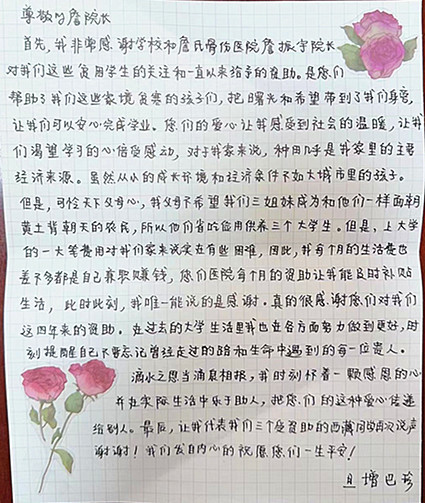 尊敬的詹院长
首先，我非常感谢学校和詹氏骨伤医院詹振宇院长
对我们这些贫困学生的关注和一直以来给予的资助。是您们
帮助了我们这些家境贫寒的孩子们，把曙光和希望带到了我们身旁，
让我们可以安心完成学业。您们的爱心让我感受到社会的温暖，让我
们渴望学习的心倍受感动，对于我家来说，种田几乎是我家里的主要
经济来源。虽然从小的成长环境和经济条件不如大城市里的孩子。
但是，可怜天下父母心，我父母不希望我们三姐妹成为和他们一样面朝
黄土背朝天的农民，所以他们省吃俭用供养三个大学生。但是，上大学
的一大笔费用对我们家来说实在有些困难，因此，我每个月的生活费也
差不多都是自己兼职赚钱，您们医院每个月的资助让我能及时补贴
生活，此时此刻，我唯一能说的是感谢。真的很感谢您们对我们
这四年来的资助。在过去的大学生活里我也在各方面努力做到更好，时
刻提醒自己不要忘记曾经走过的路和生命中遇到的每一位贵人。
滴水之恩当涌泉相报，我时刻怀着一颗感恩的心
并在实际生活中乐于助人，把您们的这种爱心传递
给别人。最后，让我代表我们三个受资助的西藏同学再次说声
谢谢！我们发自内心的祝愿您们一生平安！
旦增巴珍